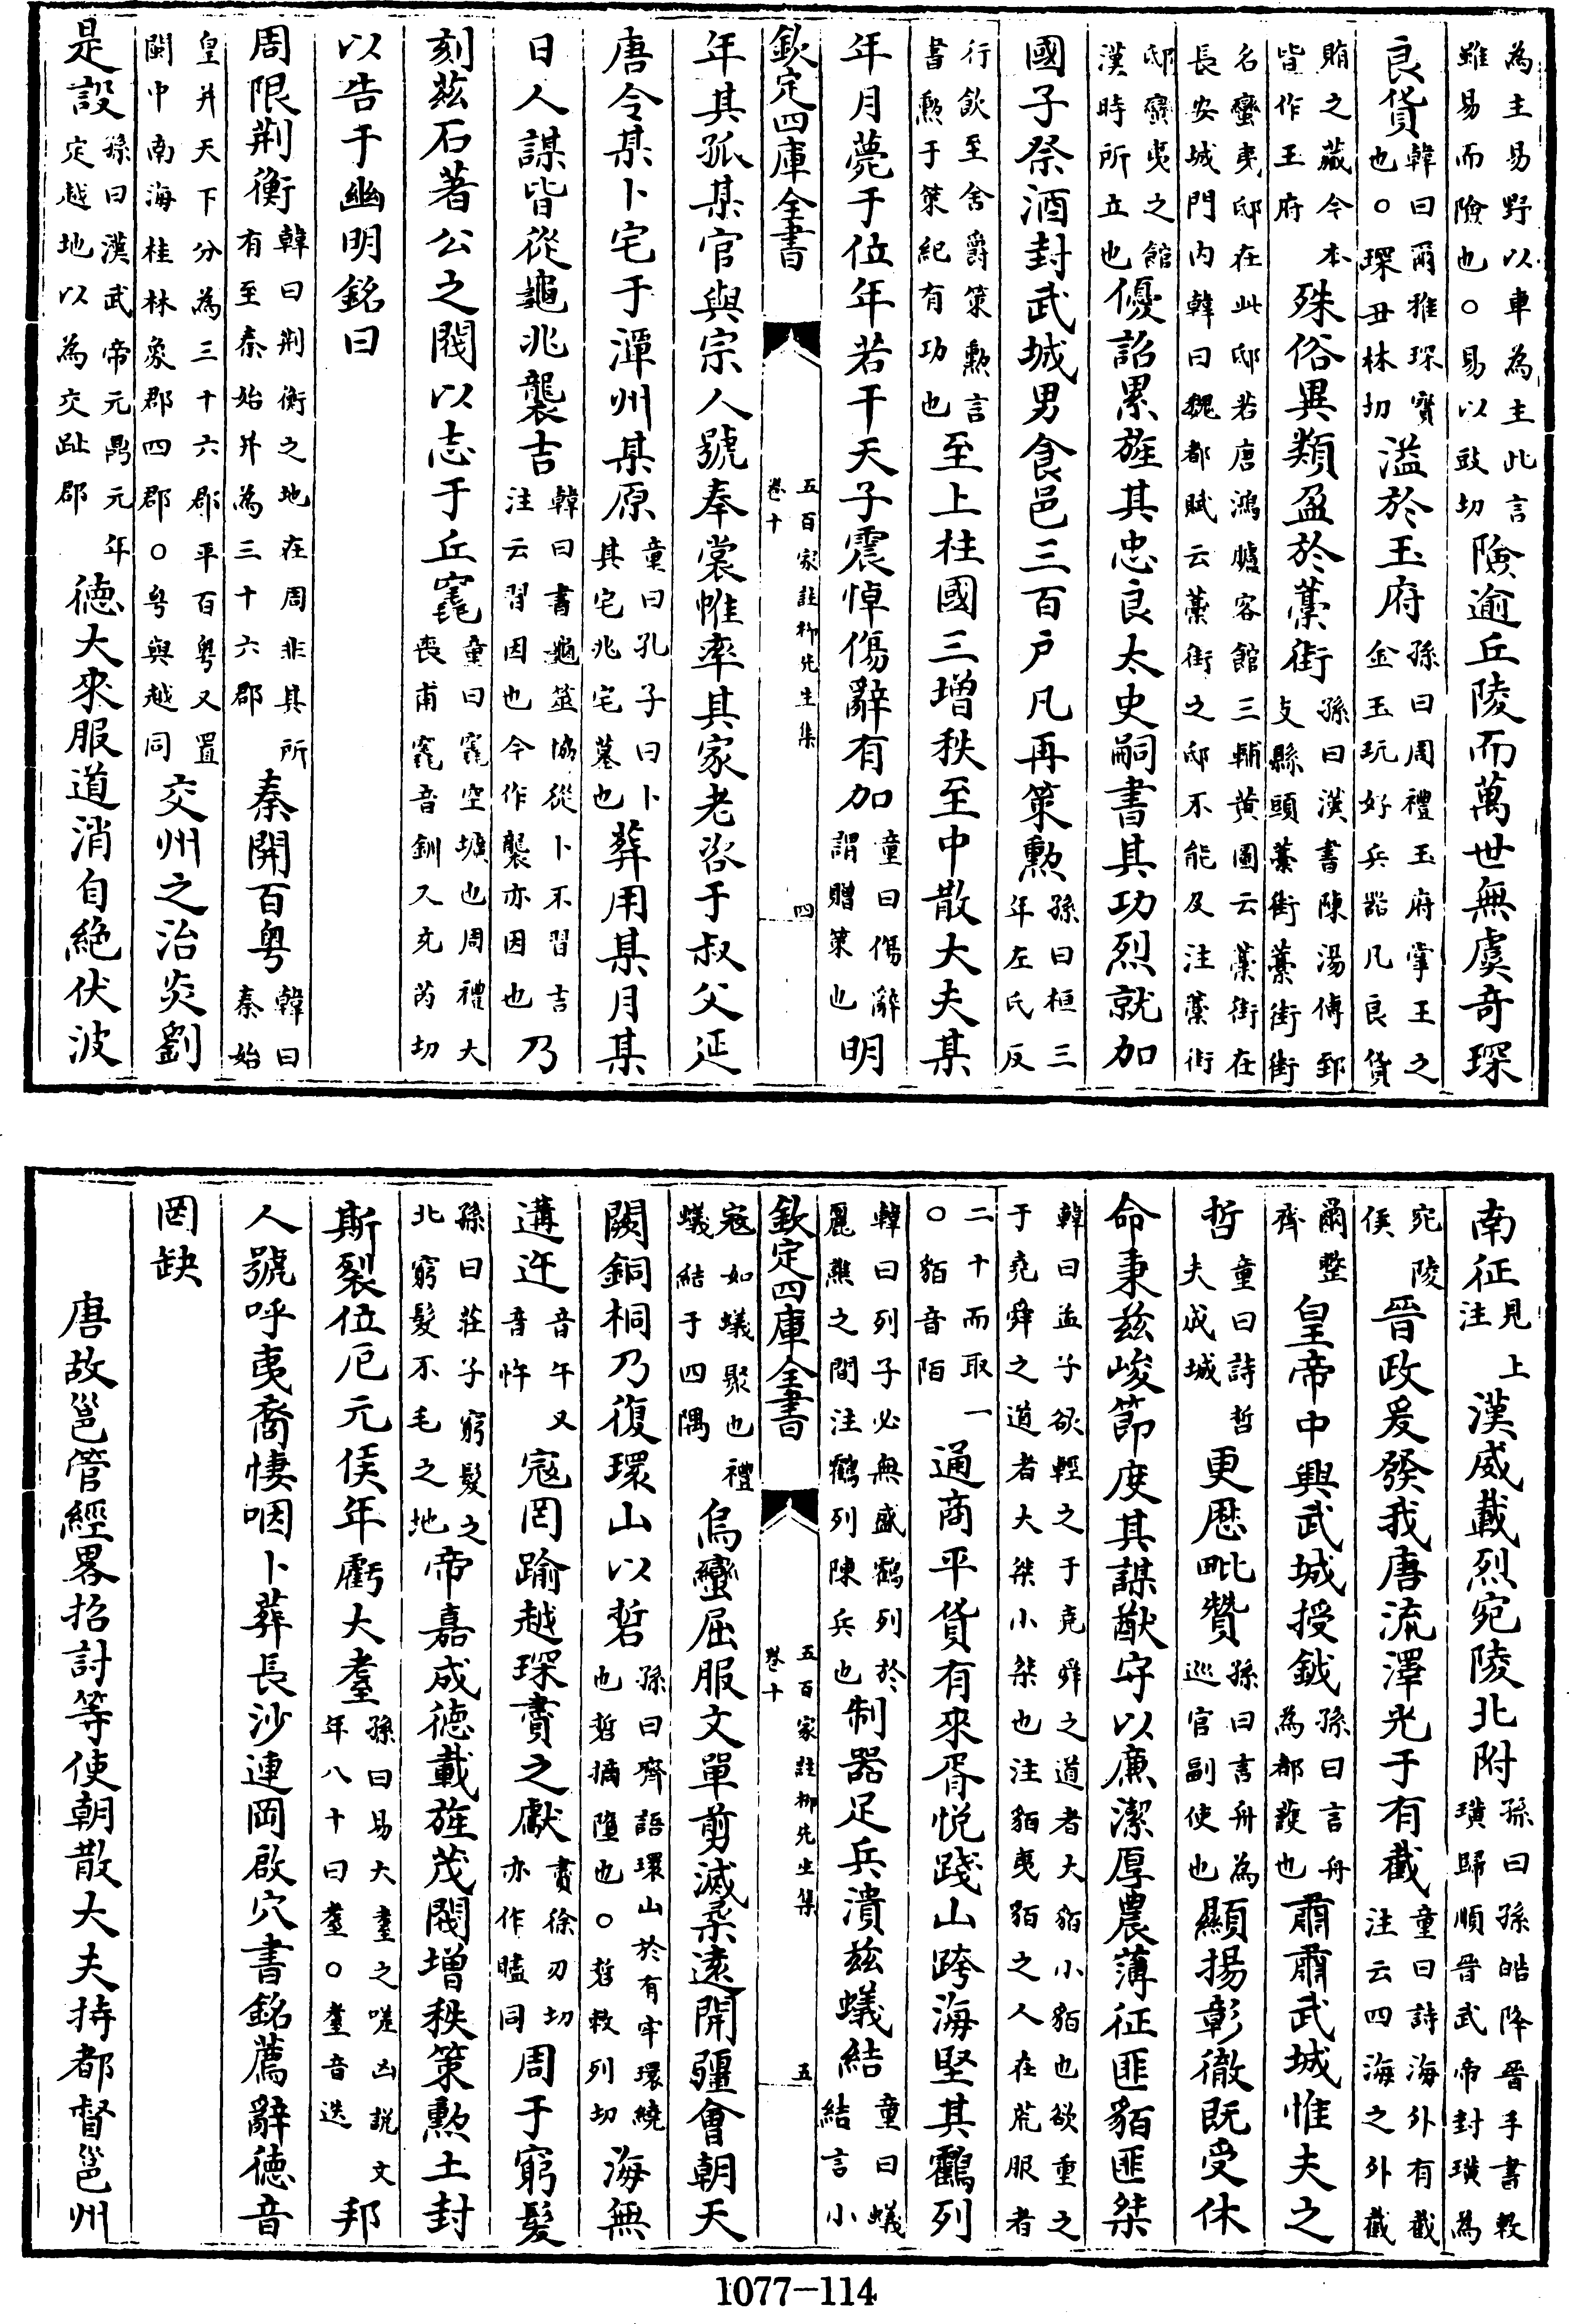 為主易野以車為主此言雖易而險也○易以豉切險逾丘陵而萬世無虞奇琛
良貨韓曰爾雅琛寶也○琛丑林切溢於玉府孫曰周禮玉府掌王之金玉玩好兵器凡良貨
賄之藏今本皆作王府殊俗異類盈於藳街孫曰漢書陳湯傳郅支縣頭藁街藁街街
名蠻夷邸在此邸若唐鴻臚客館三輔黄圖云藁街在長安城門内韓曰魏都賦云藁街之邸不能及注藁街
邸蠻夷之館漢時所立也優詔累旌其忠良太史嗣書其功烈就加
國子祭酒封武城男食邑三百户凡再策勲孫曰桓三年左氏反
行飲至舍爵策勲言書勲于策紀有功也至上柱國三增秩至中散大夫某
年月薨于位年若干天子震悼傷辭有加童曰傷辭謂贈策也明
欽定四庫全書 五百家註柳先生集 卷十 四
年其孤某官與宗人號奉裳帷率其家老咨于叔父延
唐令某卜宅于潭州某原童曰孔子曰卜其宅兆宅墓也葬用某月某
日人謀皆從龜兆襲吉韓曰書龜筮協從卜不習吉注云習因也今作襲亦因也乃
刻茲石著公之閥以志于丘竁童曰竁空壙也周禮大喪甫竁音釧又充芮切
以告于幽明銘曰
周限荆衡韓曰荆衡之地在周非其所有至秦始并為三十六郡秦開百粤韓曰秦始
皇并天下分為三十六郡平百粤又置閩中南海桂林象郡四郡○粤與越同交州之治炎劉
是設孫曰漢武帝元鼎元年定越地以為交趾郡德大來服道消自絶伏波
南征見上注漢威載烈宛陵北附孫曰孫皓降晉手書敕璜歸順晉武帝封璜為
宛陵侯晉政爰發我唐流澤光于有截童曰詩海外有截注云四海之外截
爾整齊皇帝中興武城授鉞孫曰言舟為都護也肅肅武城惟夫之
哲童曰詩哲夫成城更厯毗贊孫曰言舟為巡官副使也顯揚彰徹既受休
命秉兹峻節度其謀猷守以廉潔厚農薄征匪貊匪桀
韓曰孟子欲輕之于堯舜之道者大貊小貊也欲重之于堯舜之道者大桀小桀也注貊夷貊之人在荒服者
二十而取一○貊音陌通商平貨有來胥悦踐山跨海堅其鸛列
韓曰列子必無盛鶴列於麗樵之間注鶴列陳兵也制器足兵潰兹蟻結童曰蟻結言小
欽定四庫全書 五百家註柳先生集 卷十 五
寇如蟻聚也禮蟻結于四隅烏蠻屈服文單剪滅柔遠開疆會朝天
闕銅柱乃復環山以硩孫曰齊語環山於有牢環繞也硩擿墮也○硩敕列切海無
遘迕音午又音忤寇罔踰越琛賮之獻賮徐刃切亦作贐同周于窮髮
孫曰莊子窮髮之北窮髮不毛之地帝嘉成德載旌茂閥增秩策勲土封
斯裂位厄元侯年虧大耋孫曰易大耋之嗟凶說文年八十曰耋○耋音迭邦
人號呼夷裔悽咽卜葬長沙連岡啟穴書銘薦辭德音
罔缺
唐故邕管經畧招討等使朝散大夫持都督邕州
1077-114